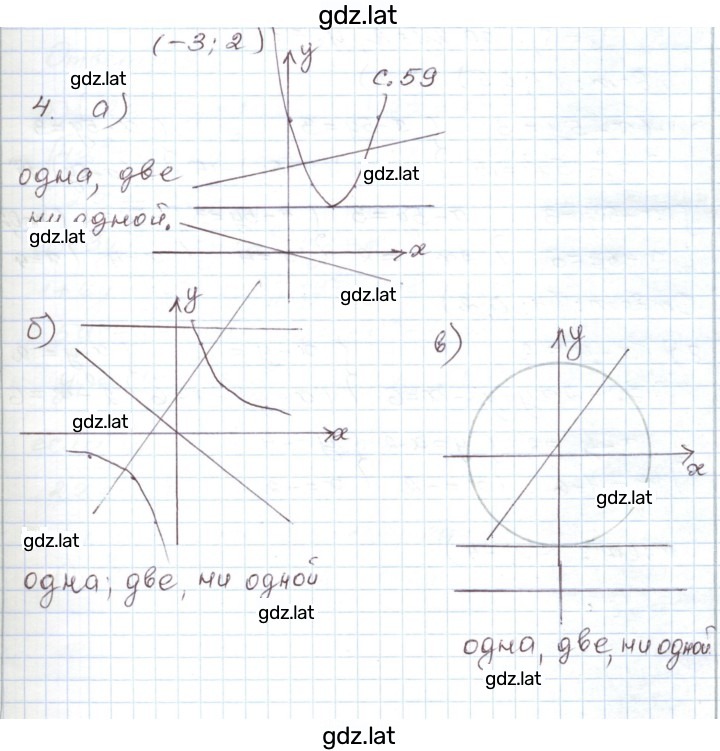 gdz.lat
(-3; 2)
y
с. 59
gdz.lat
4. а)
одна, две
ни одной.
gdz.lat
gdz.lat
x
gdz.lat
y
б)
в)
y
gdz.lat
x
x
gdz.lat
gdz.lat
одна; две, ни одной
gdz.lat
одна, две, ни одной
gdz.lat
gdz.lat